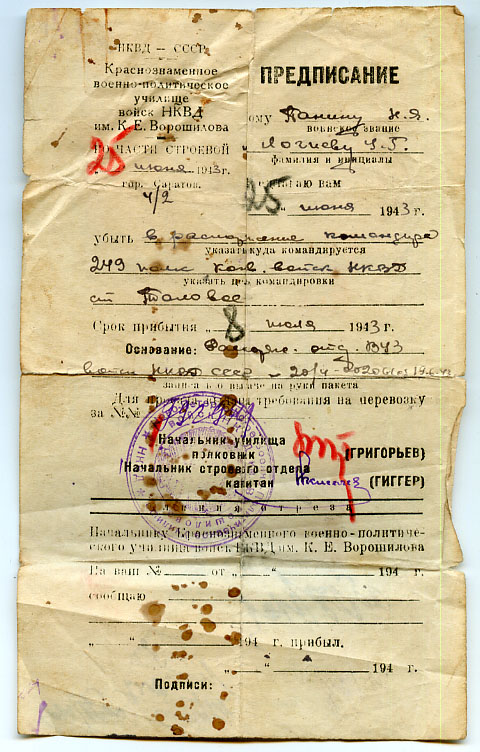 НКВД — СССР
Краснознаменное
военно-политическое
училище
войск НКВД
им. К. Е. Ворошилова
ПО ЧАСТИ СТРОЕВОЙ
25 июня 1943 г.
гор. Саратов
ч/2
ПРЕДПИСАНИЕ
Панину Н.Я.
воинское звание
фамилия и инициалы
вам
25 " июня 1943 г.
убыть в распоряжение командира
указать куда командируется
249 полк конв. войск НКВД
указать цель командировки
ст Таловое
Срок прибытия „ 8 июля 1943 г.
Основание: отд. ВУЗ
войск НКВД СССР
запись о выдаче на руки пакета
Для требования на перевозку
за №№
Начальник училища
полковник (ГРИГОРЬЕВ)
Начальник строевого отдела
капитан (ГИГГЕР)
линия отреза
Начальнику Краснознаменного военно-политиче-
ского училища войск НКВД им. К. Е. Ворошилова
На ваш № от „ “ 194 г.
сообщаю
„ “ 194 г. прибыл.
„ “ 194 г.
Подписи: